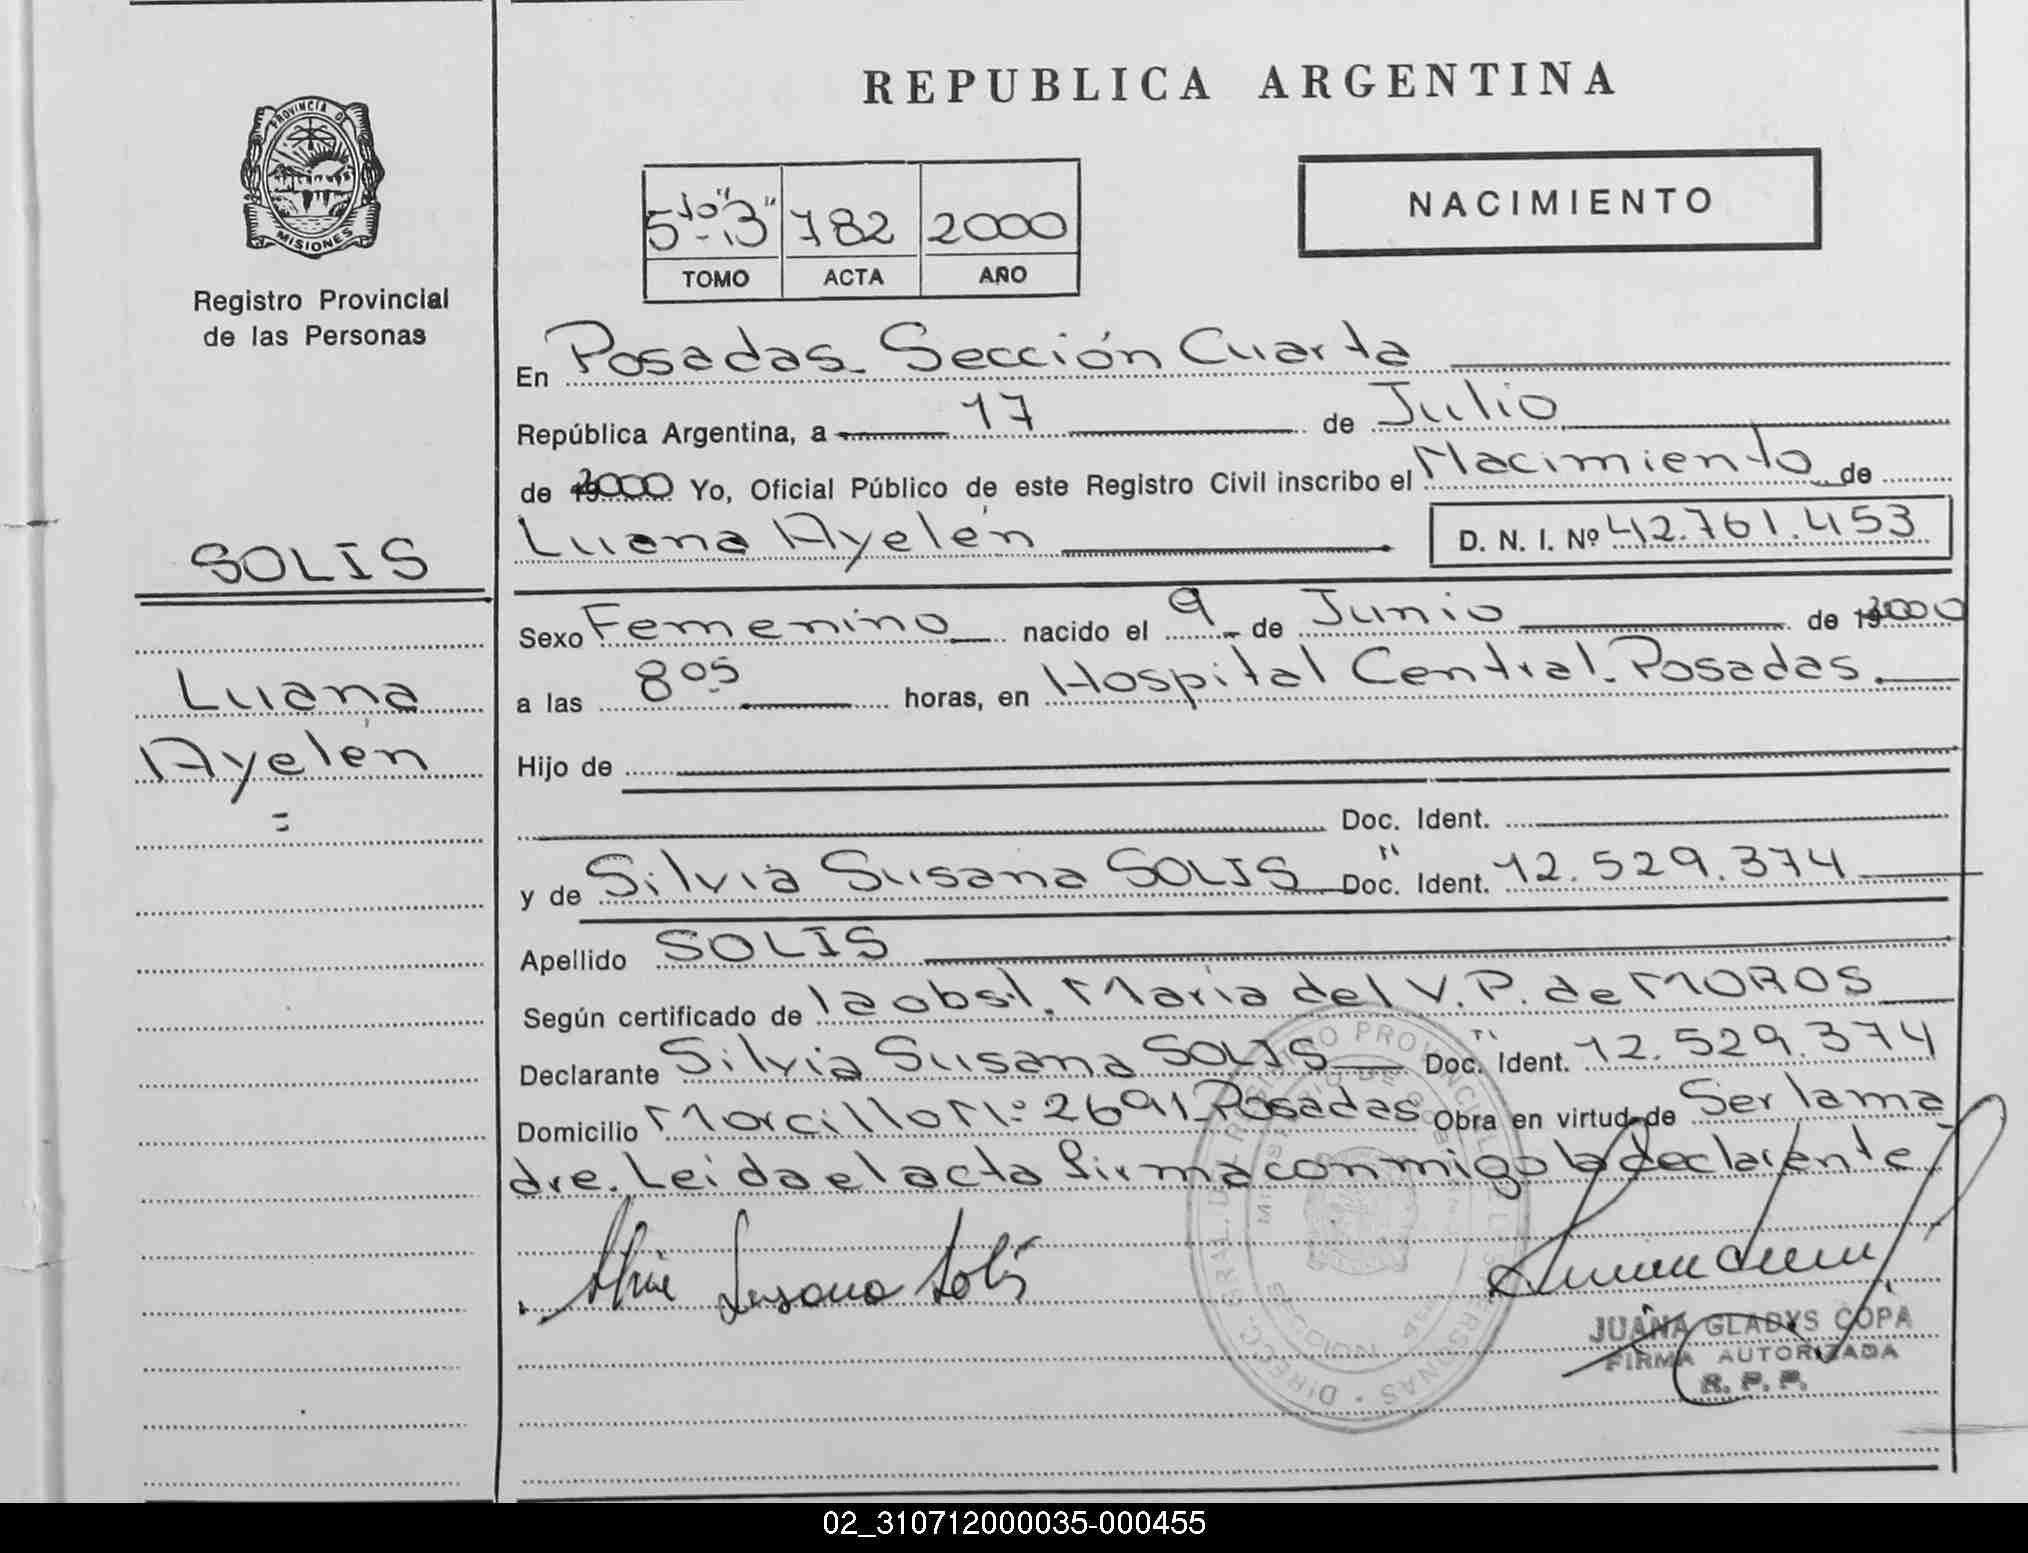 REPUBLICA ARGENTINA
NACIMIENTO
PROVINCIA DE
MISIONES
Registro Provincial
de las Personas
5to "3" 782 2000
TOMO ACTA AÑO
En Posadas Sección Cuarta
República Argentina, a 17 de Julio
de 2000 Yo, Oficial Público de este Registro Civil inscribo el Nacimiento de
Luana Ayelén D. N. I. Nº 42.761.453
SOLIS
Luana
Ayelén
Sexo Femenino nacido el 9 de Junio de 2000
a las 8 05 horas, en Hospital Central. Posadas.
Hijo de
Doc. Ident.
y de Silvia Susana SOLIS Doc. Ident. 12.529.374
Apellido SOLIS
Según certificado de la obst. María del V. P. de MOROS
Declarante Silvia Susana SOLIS Doc. Ident. 12.529.374
Domicilio Morcillo Nº 2691 Posadas Obra en virtud de Ser la ma
dre. Leida el acta firma conmigo la declarante
Silvia Susana Solis
JUANA GLADYS COPA
FIRMA AUTORIZADA
R. P. P.
02_310712000035-000455